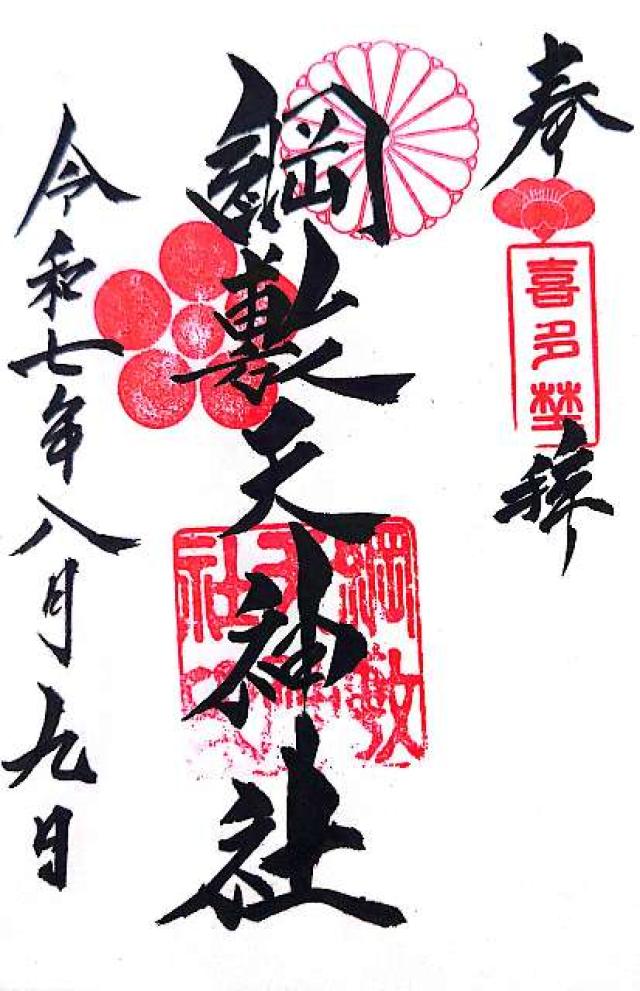 奉拝
喜多埜
綱敷天神社
綱敷天神社
令和七年八月九日